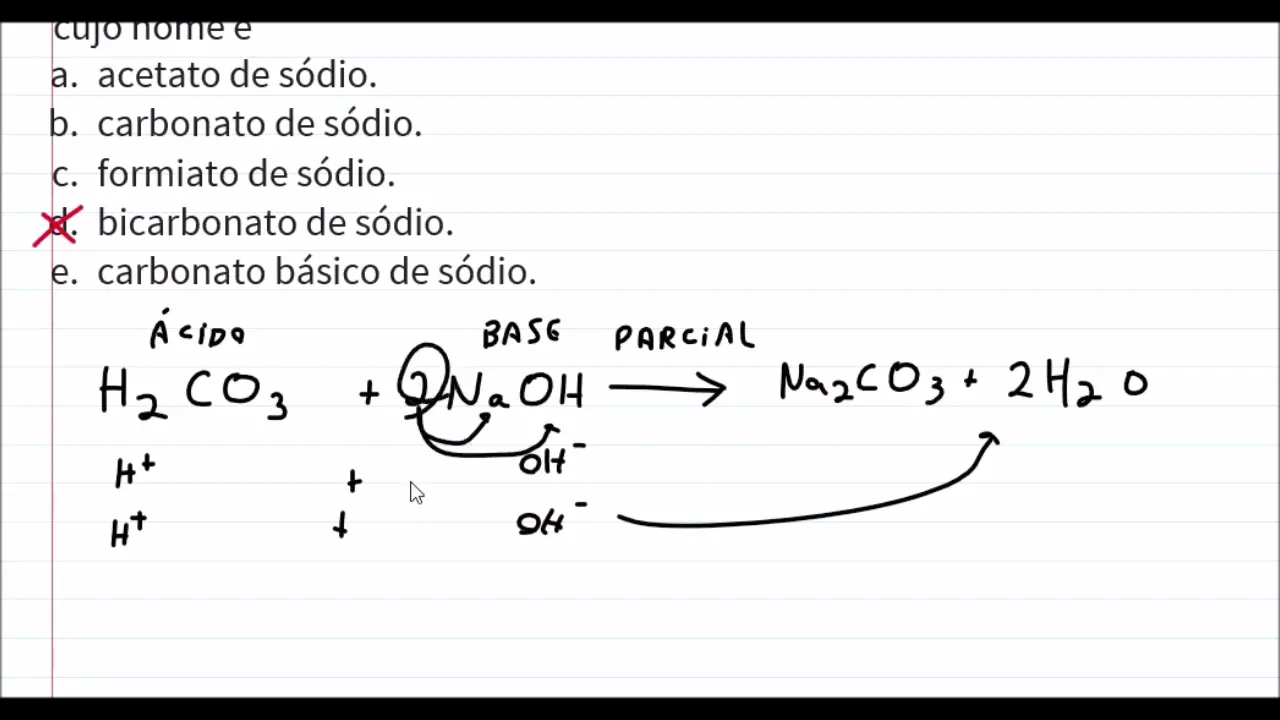 cujo nome é
a. acetato de sódio.
b. carbonato de sódio.
c. formiato de sódio.
d. bicarbonato de sódio.
e. carbonato básico de sódio.
ÁCIDO BASE PARCIAL
H₂CO₃ + 2NaOH → Na₂CO₃ + 2H₂O
H⁺ + OH⁻
H⁺ + OH⁻